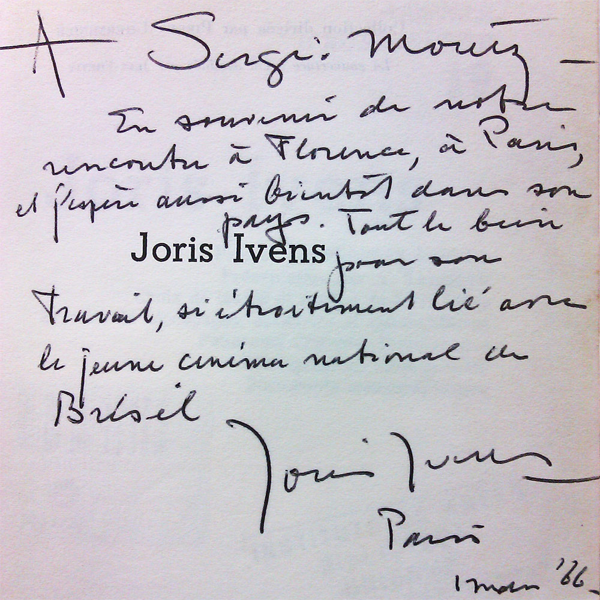 A Sergio Moniz –
En souvenir de notre
rencontre à Florence, à Paris,
et j'espère aussi bientôt dans son
pays. Tout le bien
Joris Ivens
pour son
travail, si étroitement lié avec
le jeune cinéma national de
Brésil
Joris Ivens
Paris
1 mars '66–